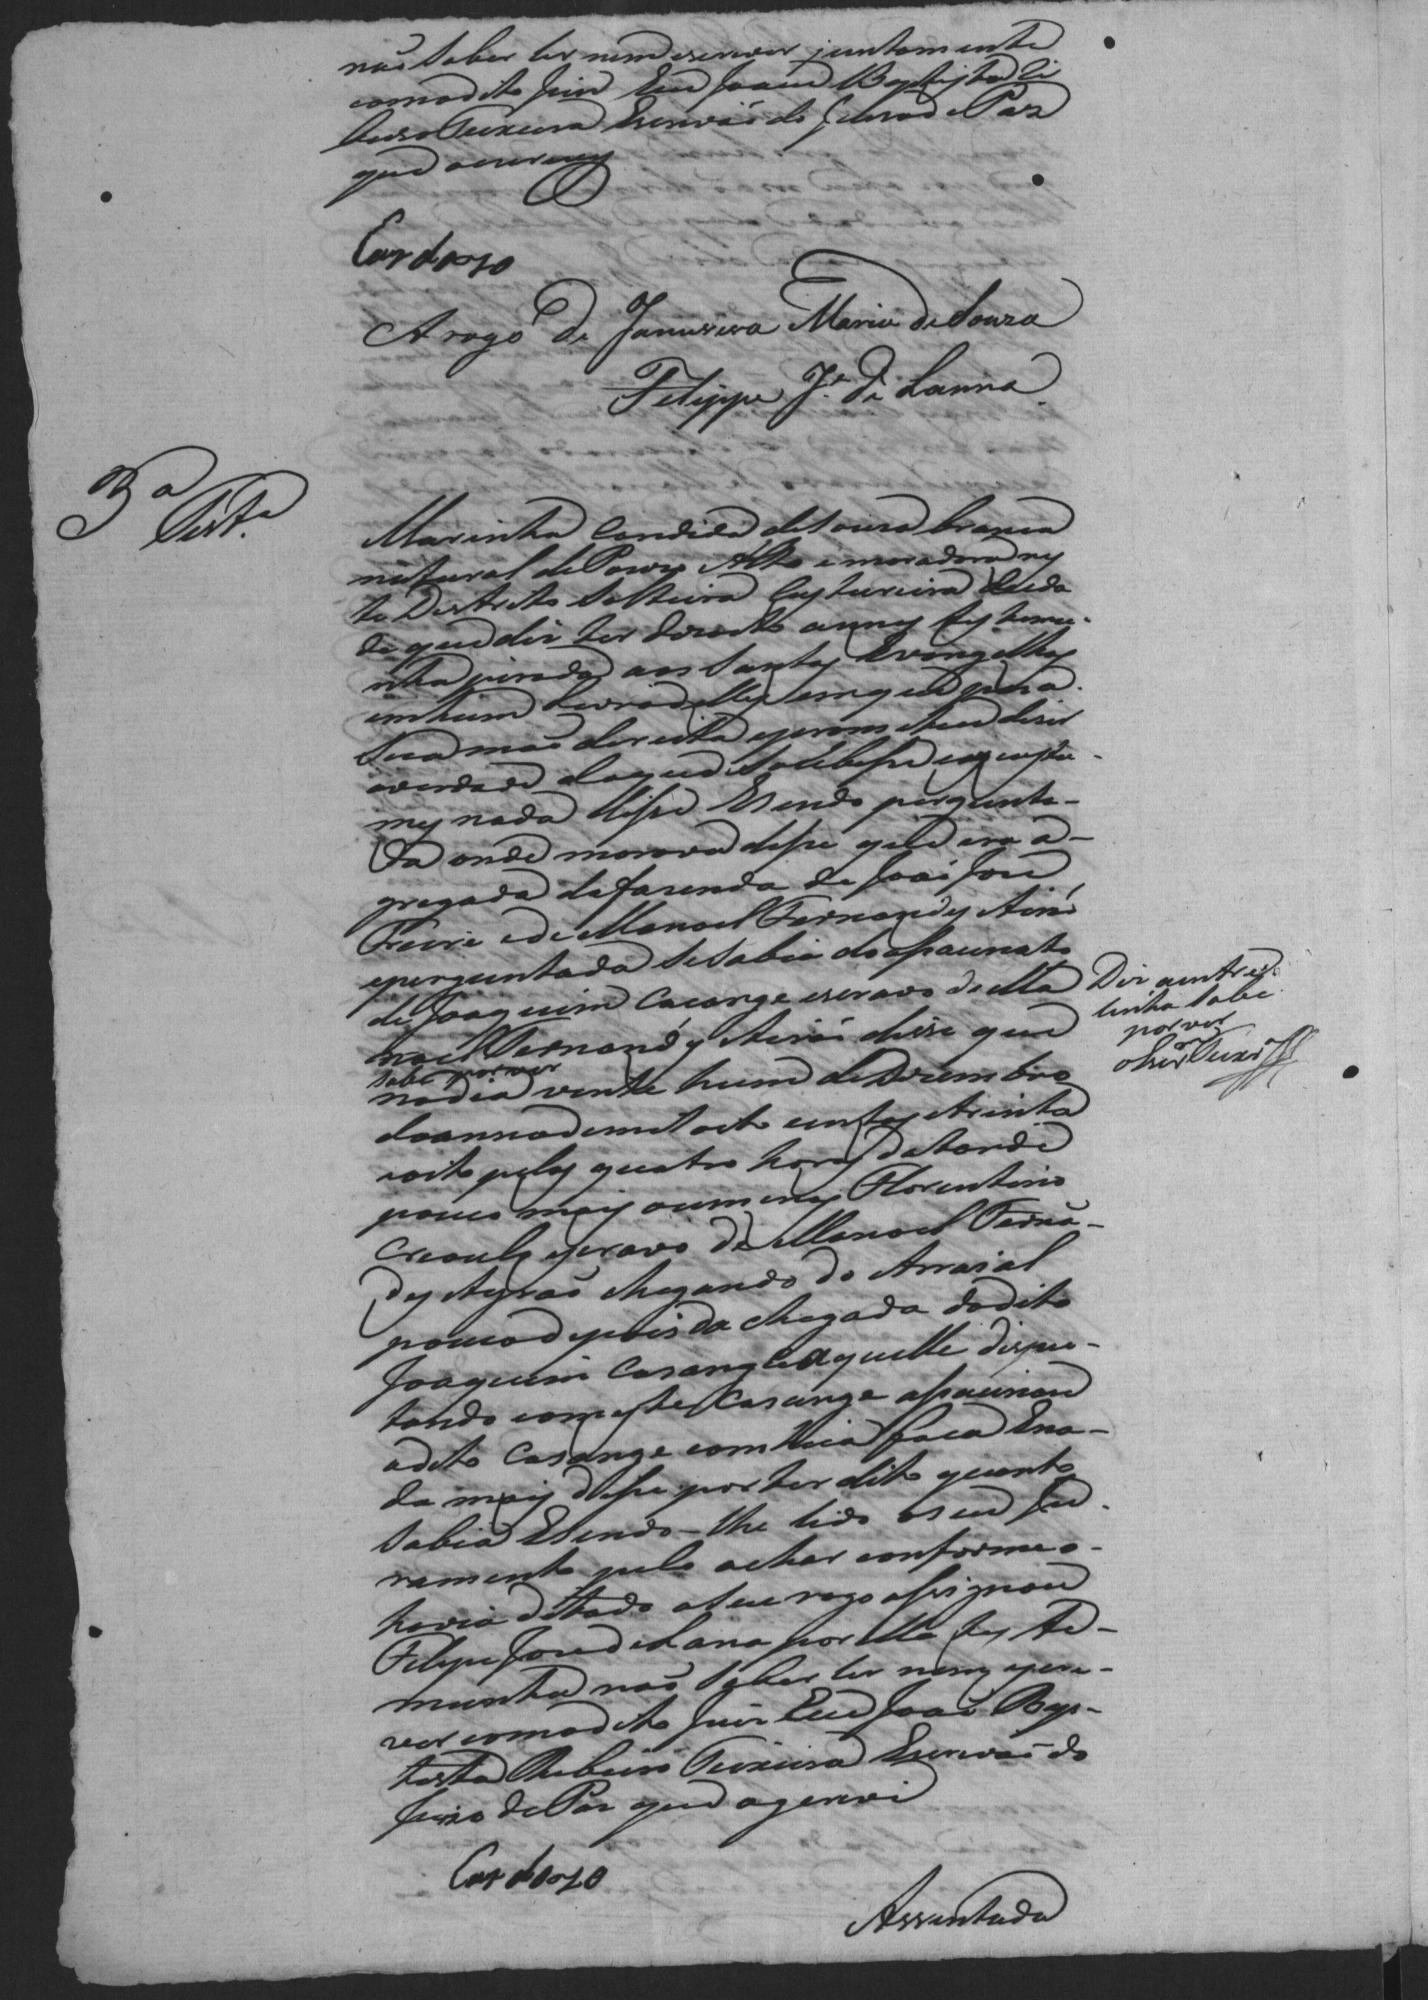 não saber ler nem escrever juntamente
com o dito Juis Eu João Baptista Ri
beiro Teixeira Escrivão do Juiso de Paz
que o escrevy
Cardozo
A rogo de Maria de Souza
Filippe J.e de Lanna
3a Test.a
Marinha Candida de Souza branca
natural de Pouzo Alto e moradora nes
te Destrito Solteira Custureira Eleda
de que diz ter annos testemu-
nha jurada aos Santos Evangelhos
em hum Livro delles em que pos a
Sua mão direita e prometeu diser
a verdade do que Soubesse e aos custu-
mes nada disse E sendo pergunta-
da onde morava disse que era a-
gregada da fasenda de João José
Freire e de Manoel Fernandes Airão
e perguntada se sabia do assacinato
de Joaquim Caçange escravo de Ma
noel Fernandes Airão disse que
sabe por ver
no dia vinte hum de Desembro
do anno de mil oito centos e trinta
e oito pelas quatro horas da tarde
pouco mais ou menos Florentino
Creoulo escravo de Manoel Fernã-
des Ayrão chegando do Arraial
pouco depois da chegada do dito
Joaquim Casange aquelle dispu-
tando com este Casange assacinou
a dito Casange com hua faca E na-
da mais disse por ter dito quanto
sabia E sendo-lhe lido o seu Ju-
ramento pelo achar conforme o
havia ditado a seu rogo assignou
Felipe Jose de Lana por ella teste-
munha não saber ler nem escre-
ver com o dito Juis Eu João Bap-
tista Ribeiro Teixeira Escrivão do
Juiso de Paz que o escrevi
Diz a entre
linha sabe
por ver
Teixr.a
Cardozo
Assentada